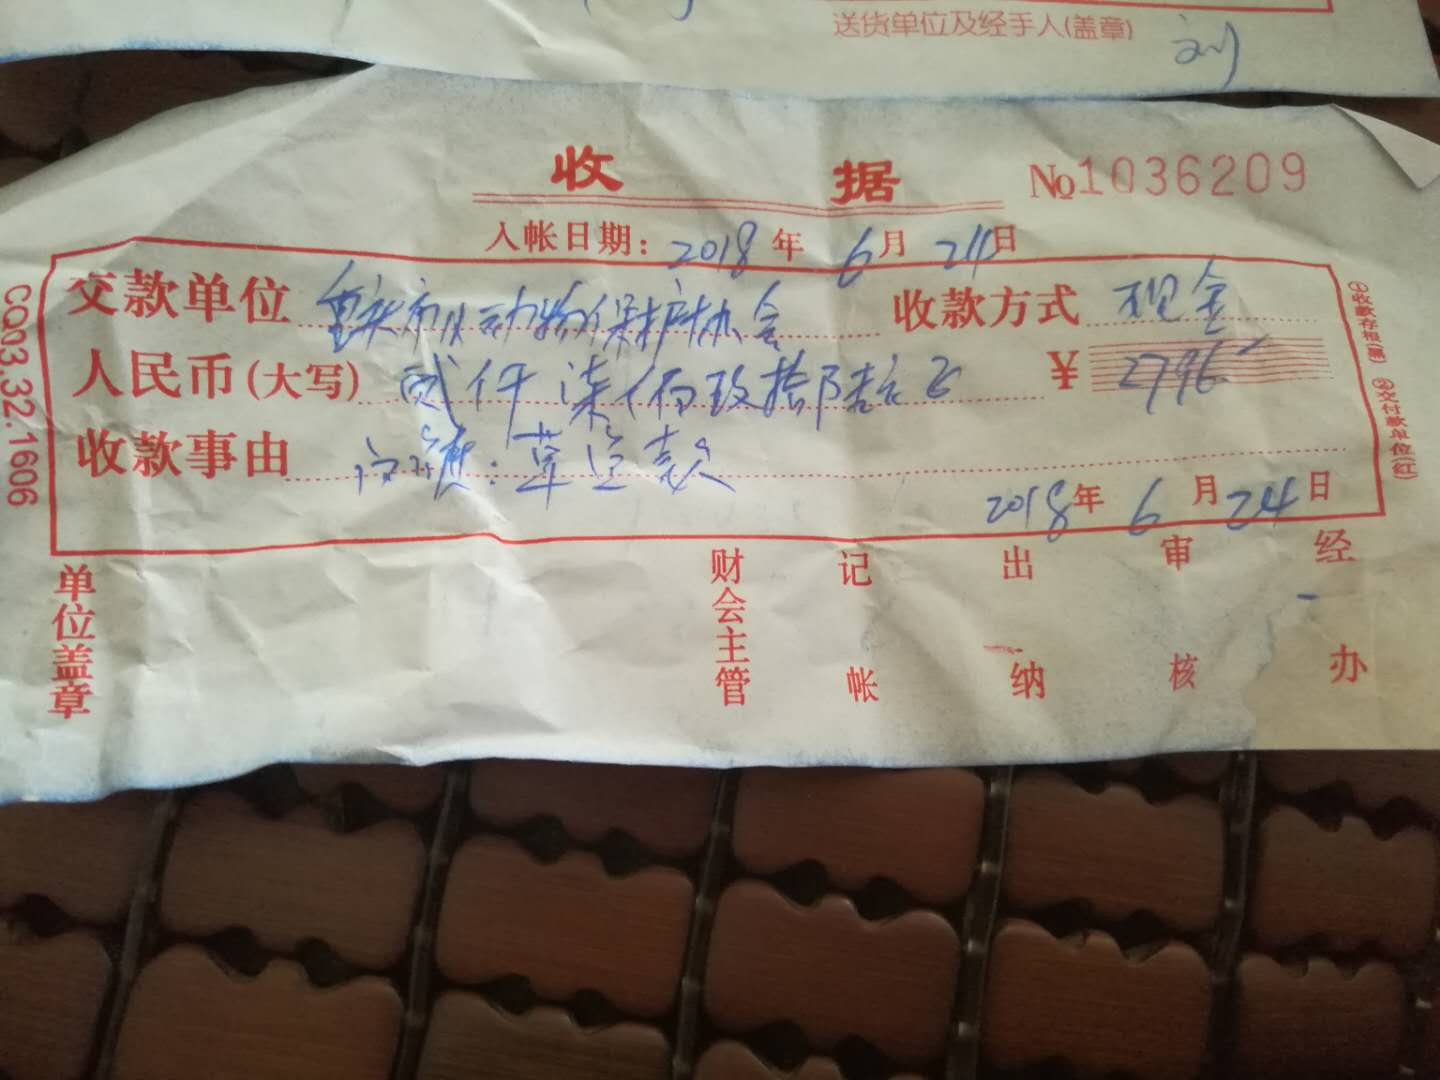 送货单位及经手人(盖章) 刘
收 据 №1036209
入帐日期: 2018 年 6 月 24 日
交款单位 重庆市小动物保护协会 收款方式 现金
人民币(大写) 贰仟柒佰玖拾陆元正 ¥ 2796
收款事由 草豆款
2018 年 6 月 24 日
单位盖章 财会主管 记帐 出纳 审核 经办
CQ03.32.1606
①收款存根(黑) ②交付款单位(红)